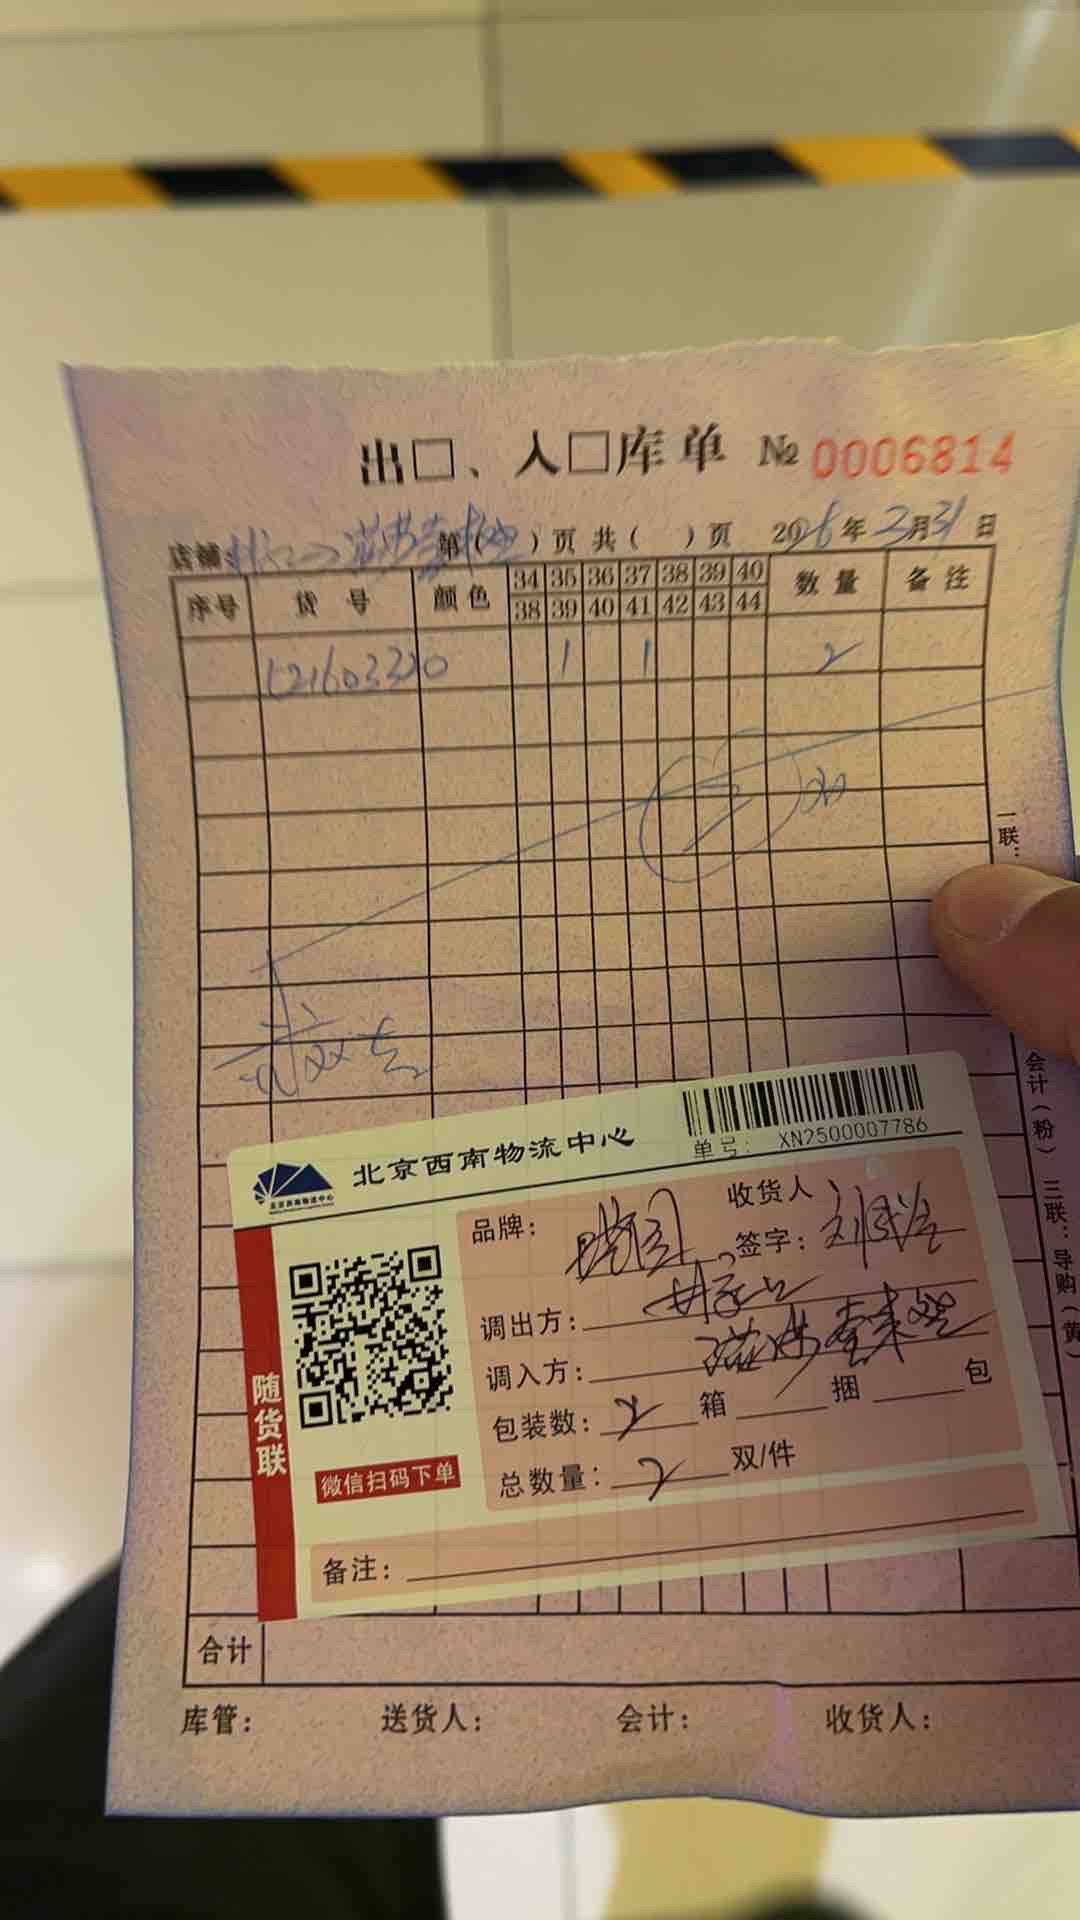 出□、入□库单 № 0006814
店铺 第( )页 共( )页 2026年 月31日
序号 货号 颜色 34 35 36 37 38 39 40 数量 备注
38 39 40 41 42 43 44
521603320 1 1 2
一联：
会计（粉） 三联：导购（黄）
北京西南物流中心
北京西南物流中心
单号： XN2500007786
随货联
微信扫码下单
品牌：
收货人
签字：
调出方：
调入方：
包装数： 2 箱 捆 包
总数量： 2 双/件
备注：
合计
库管： 送货人： 会计： 收货人：